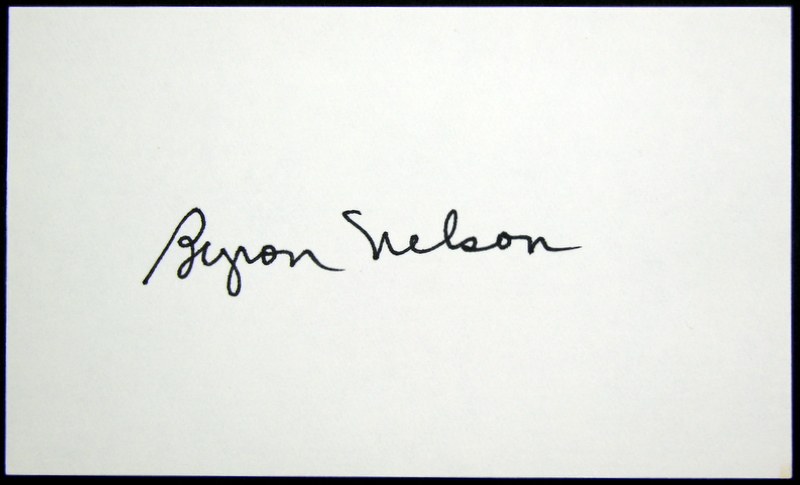 Byron Nelson